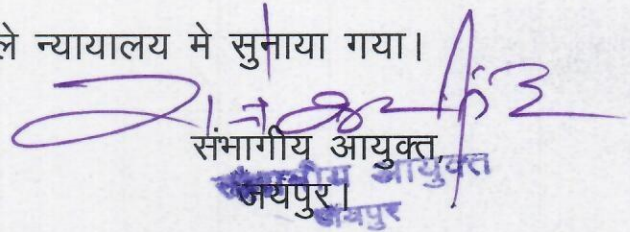 ले न्यायालय मे सुनाया गया।
संभागीय आयुक्त,
जयपुर।
संभागीय आयुक्त
जयपुर